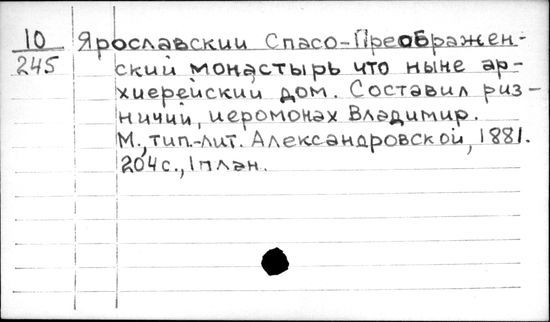 10 Ярославский Спасо-Преображен-
245 ский монастырь что ныне ар-
хиерейский дом. Составил риз-
ничий, иеромонах Владимир.
М., тип.-лит. Александровской, 1881.
204с., 1план.